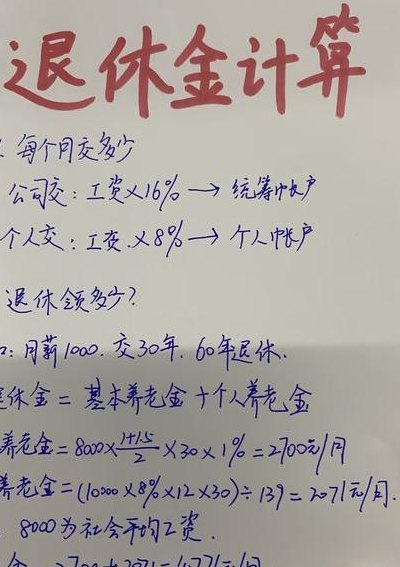 退休金计算
每个月交多少
公司交：工资×16% → 统筹帐户
个人交：工资.×8% → 个人帐户
退休领多少?
：月薪1000. 交30年. 60年退休.
休金 = 基本养老金 + 个人养老金
养老金 = 8000×(1+1.5)/2 ×30×1% = 2700元/月
养老金 = (10000×8%×12×30)÷139 = 2071元/月.
8000为社会平均工资.